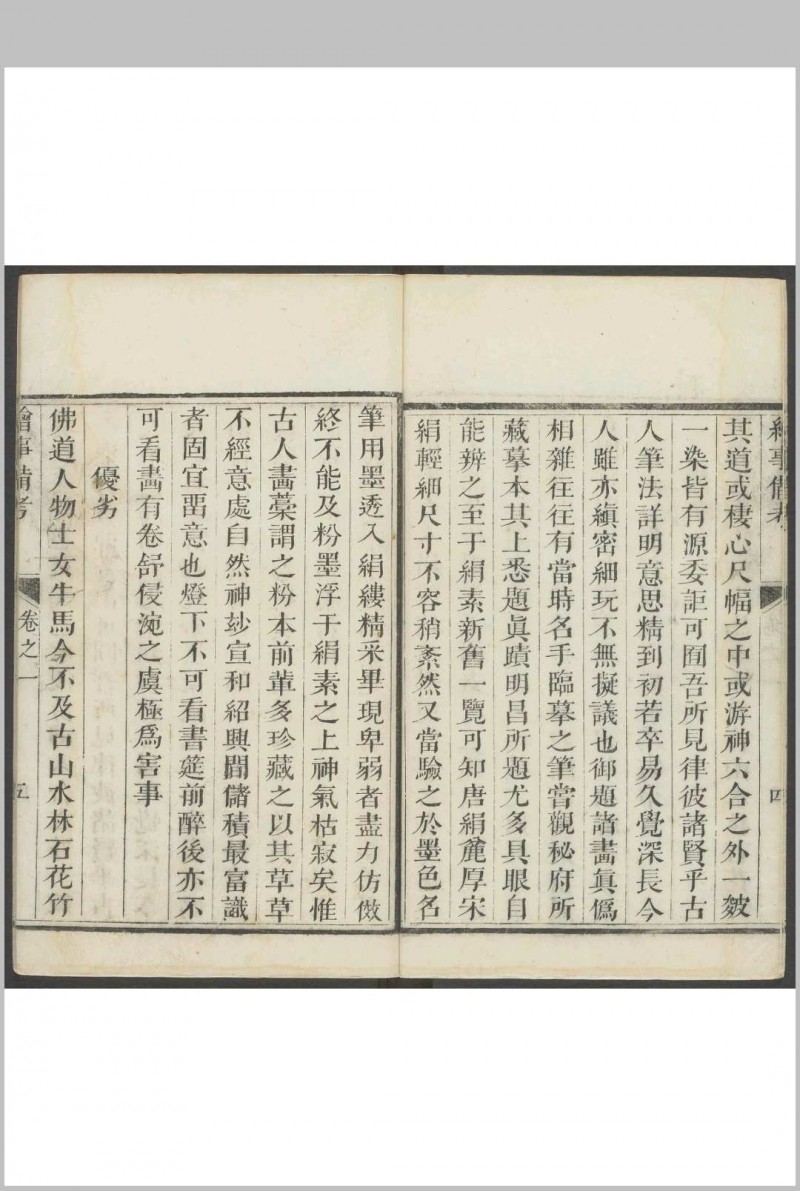 繪事備考
四
其道或棲心尺幅之中或游神六合之外一皴
一染皆有源委詎可囿吾所見律彼諸賢乎古
人筆法詳明意思精到初若卒易久覺深長今
人雖亦縝密細玩不無擬議也御題諸畵眞僞
相雜往往有當時名手臨摹之筆嘗觀秘府所
藏摹本其上悉題眞蹟明昌所題尤多具眼自
能辨之至于絹素新舊一覽可知唐絹麄厚宋
絹輕細尺寸不容稍紊然又當驗之於墨色名
筆用墨透入絹縷精采畢現卑弱者盡力仿傚
終不能及粉墨浮于絹素之上神氣枯寂矣惟
古人畵藁謂之粉本前軰多珍藏之以其草草
不經意處自然神玅宣和紹興閒儲積最富識
者固宜畱意也燈下不可看書筵前醉後亦不
可看畵有卷舒侵涴之虞極爲害事
優劣
佛道人物士女牛馬今不及古山水林石花竹
繪事備考
卷之一
五